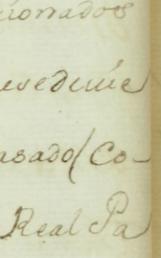 cionados
evedeuie
asado (Co-
Real Pa